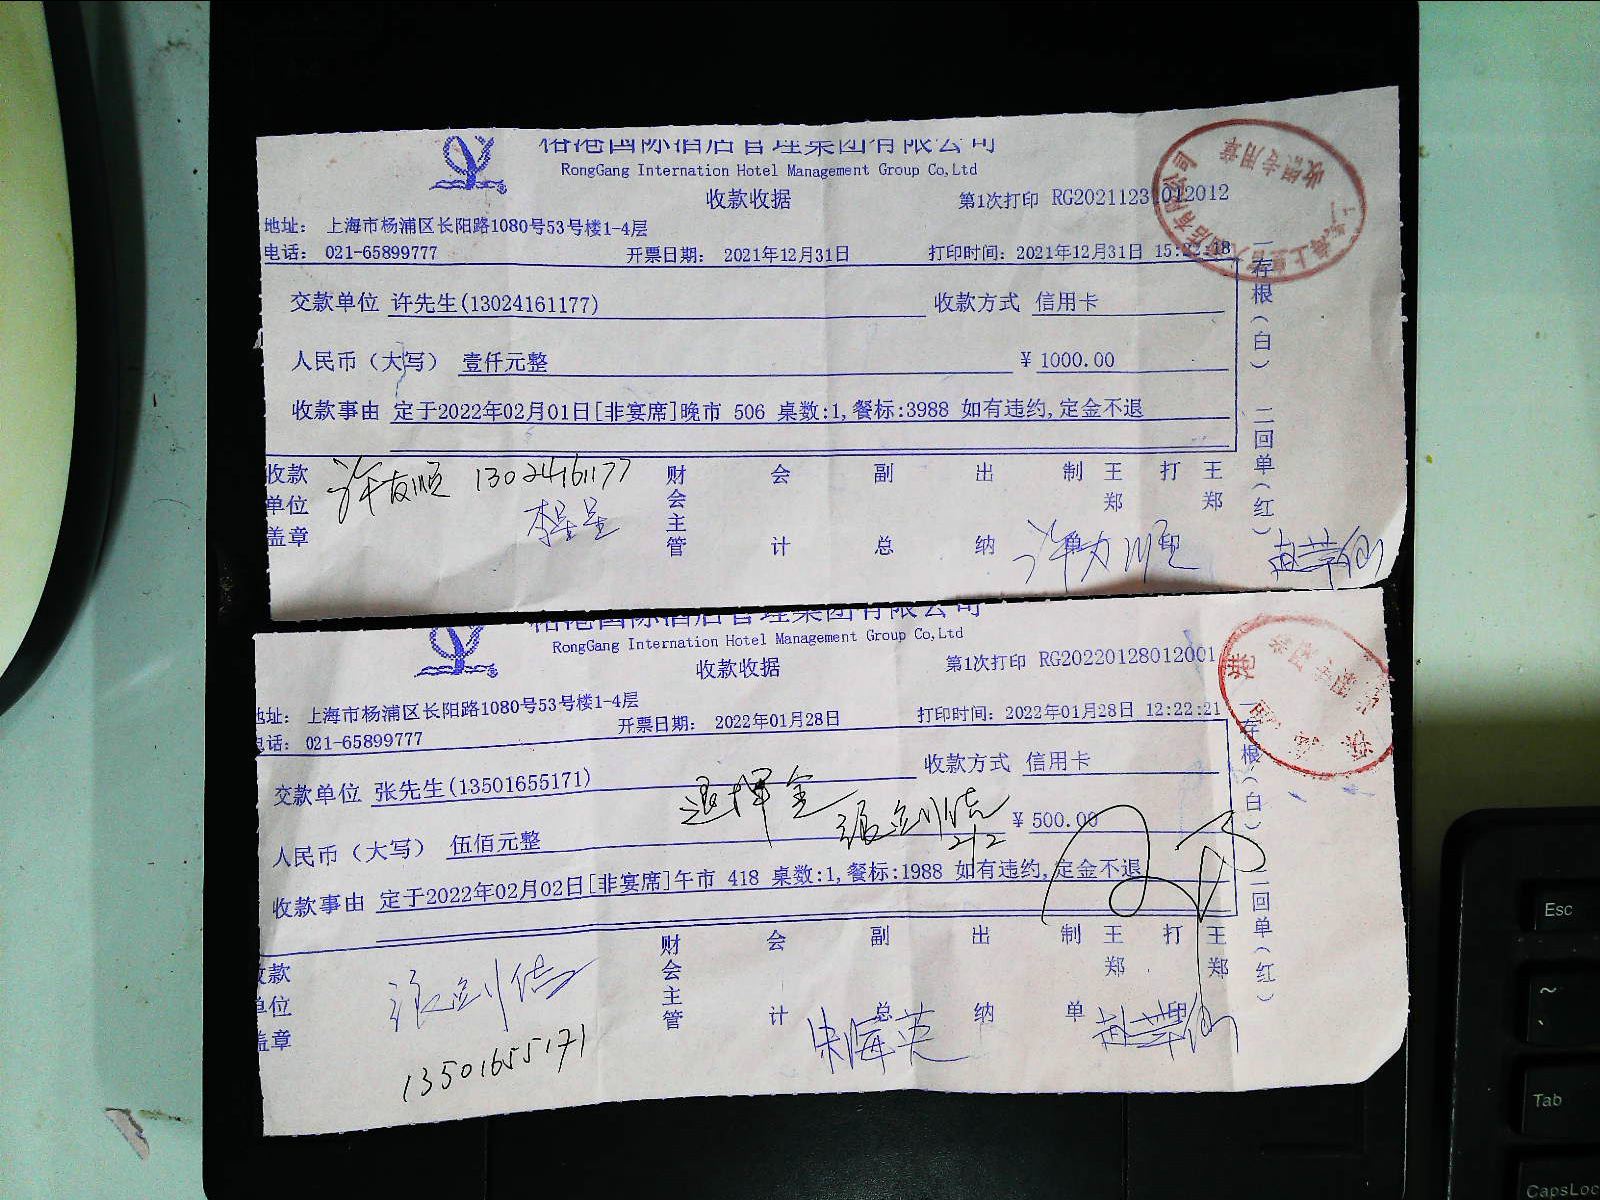 裕港国际酒店管理集团有限公司
RongGang Internation Hotel Management Group Co,Ltd
收款收据
第1次打印 RG20211231012012
地址： 上海市杨浦区长阳路1080号53号楼1-4层
电话： 021-65899777 开票日期： 2021年12月31日 打印时间：2021年12月31日 15:22:18
交款单位 许先生(13024161177) 收款方式 信用卡
人民币（大写） 壹仟元整 ￥ 1000.00
收款事由 定于2022年02月01日[非宴席]晚市 506 桌数:1,餐标:3988 如有违约,定金不退
一存根（白） 二回单（红）
收款单位盖章 13024161177 李星星 财会主管 会计 副总 出纳 制单 王郑 打印 王郑
收款专用章
裕港国际酒店管理集团有限公司
RongGang Internation Hotel Management Group Co,Ltd
收款收据
第1次打印 RG20220128012001
地址： 上海市杨浦区长阳路1080号53号楼1-4层
电话： 021-65899777 开票日期： 2022年01月28日 打印时间：2022年01月28日 12:22:21
交款单位 张先生(13501655171) 收款方式 信用卡
人民币（大写） 伍佰元整 ￥ 500.00
2/2
收款事由 定于2022年02月02日[非宴席]午市 418 桌数:1,餐标:1988 如有违约,定金不退
一存根（白） 二回单（红）
收款单位盖章 财会主管 会计 副总 出纳 制单 王郑 打印 王郑
13501655171 朱海英
Esc
~
Tab
CapsLoc